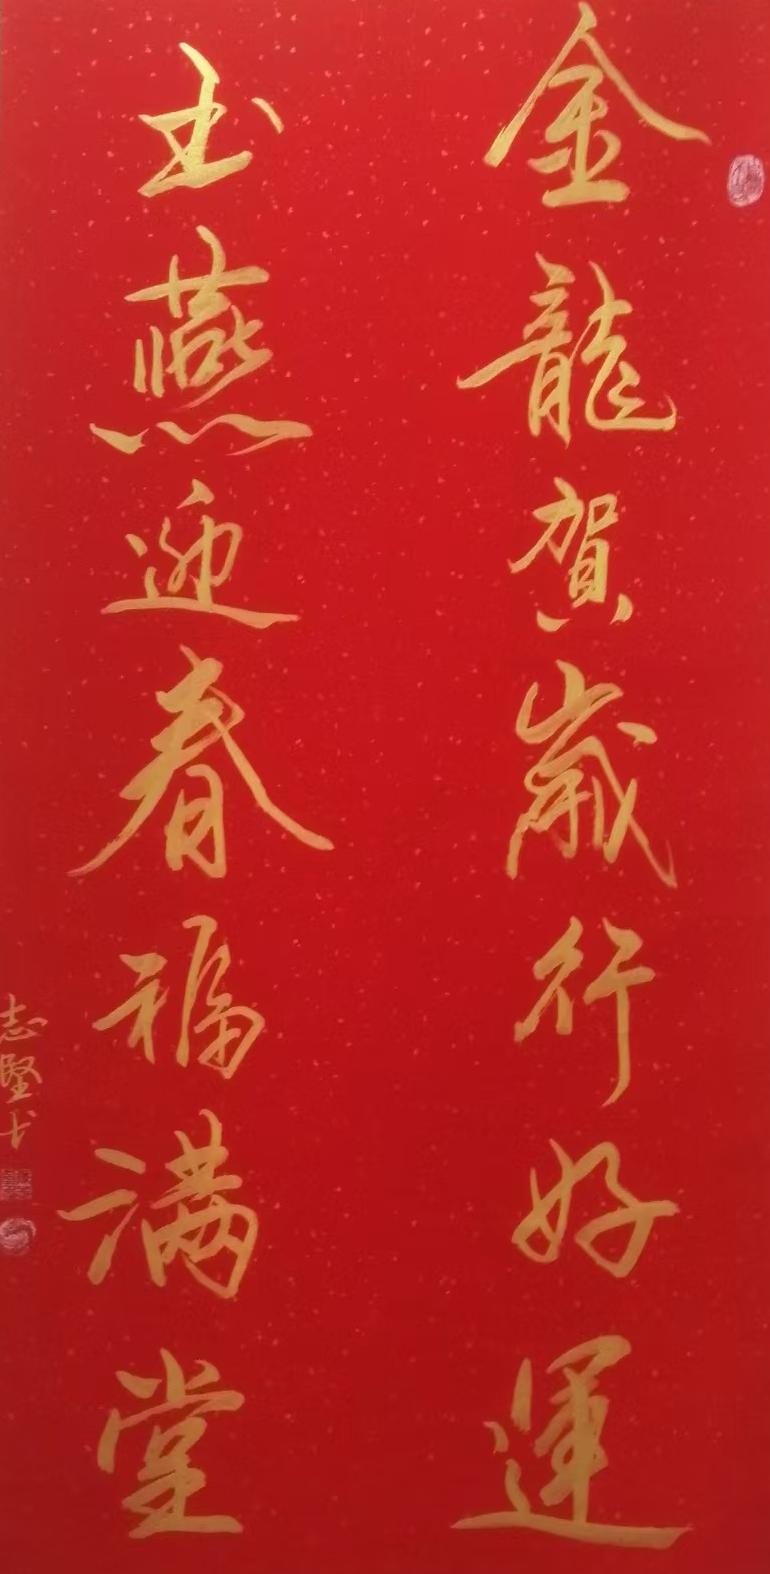 金龍賀歲行好運
玉燕迎春福满堂
志堅书